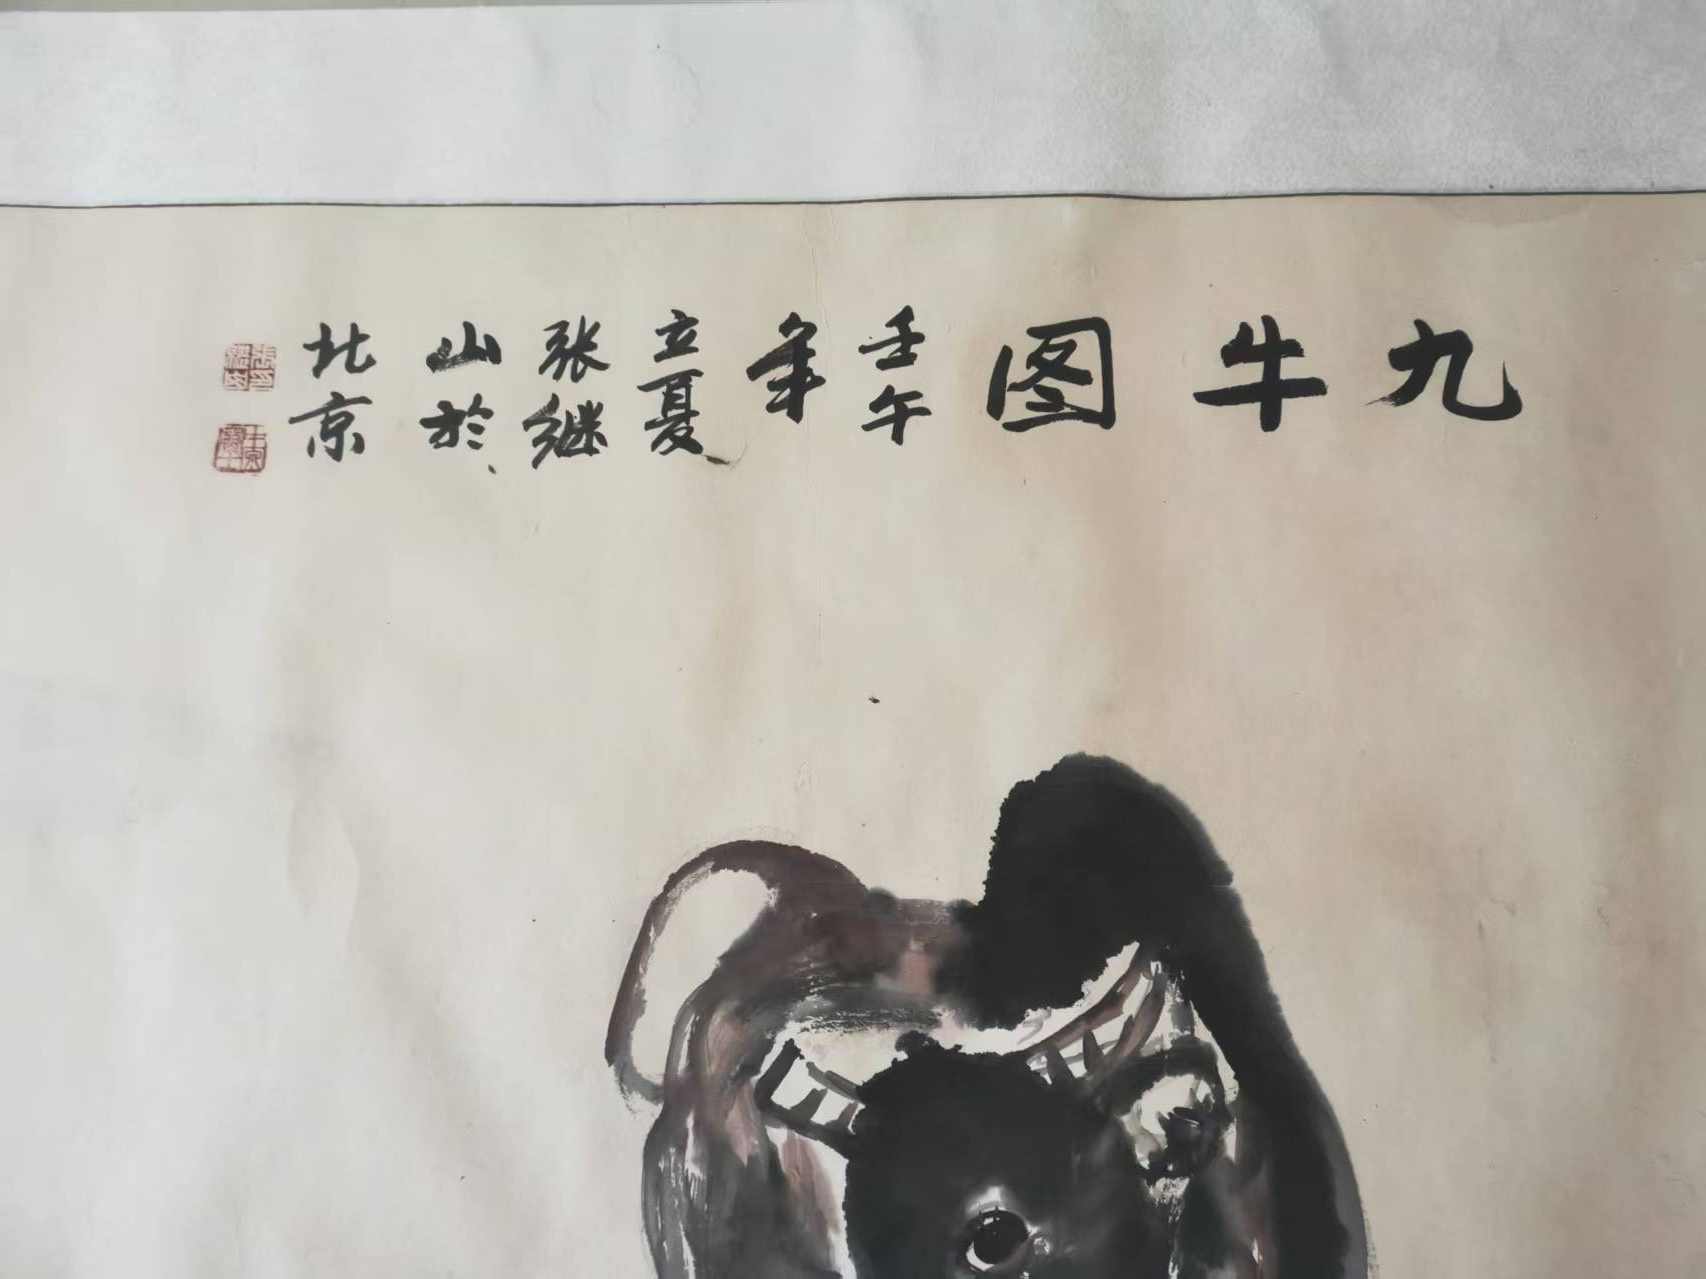 九牛图
壬午
年
立夏
张继
山於
北京